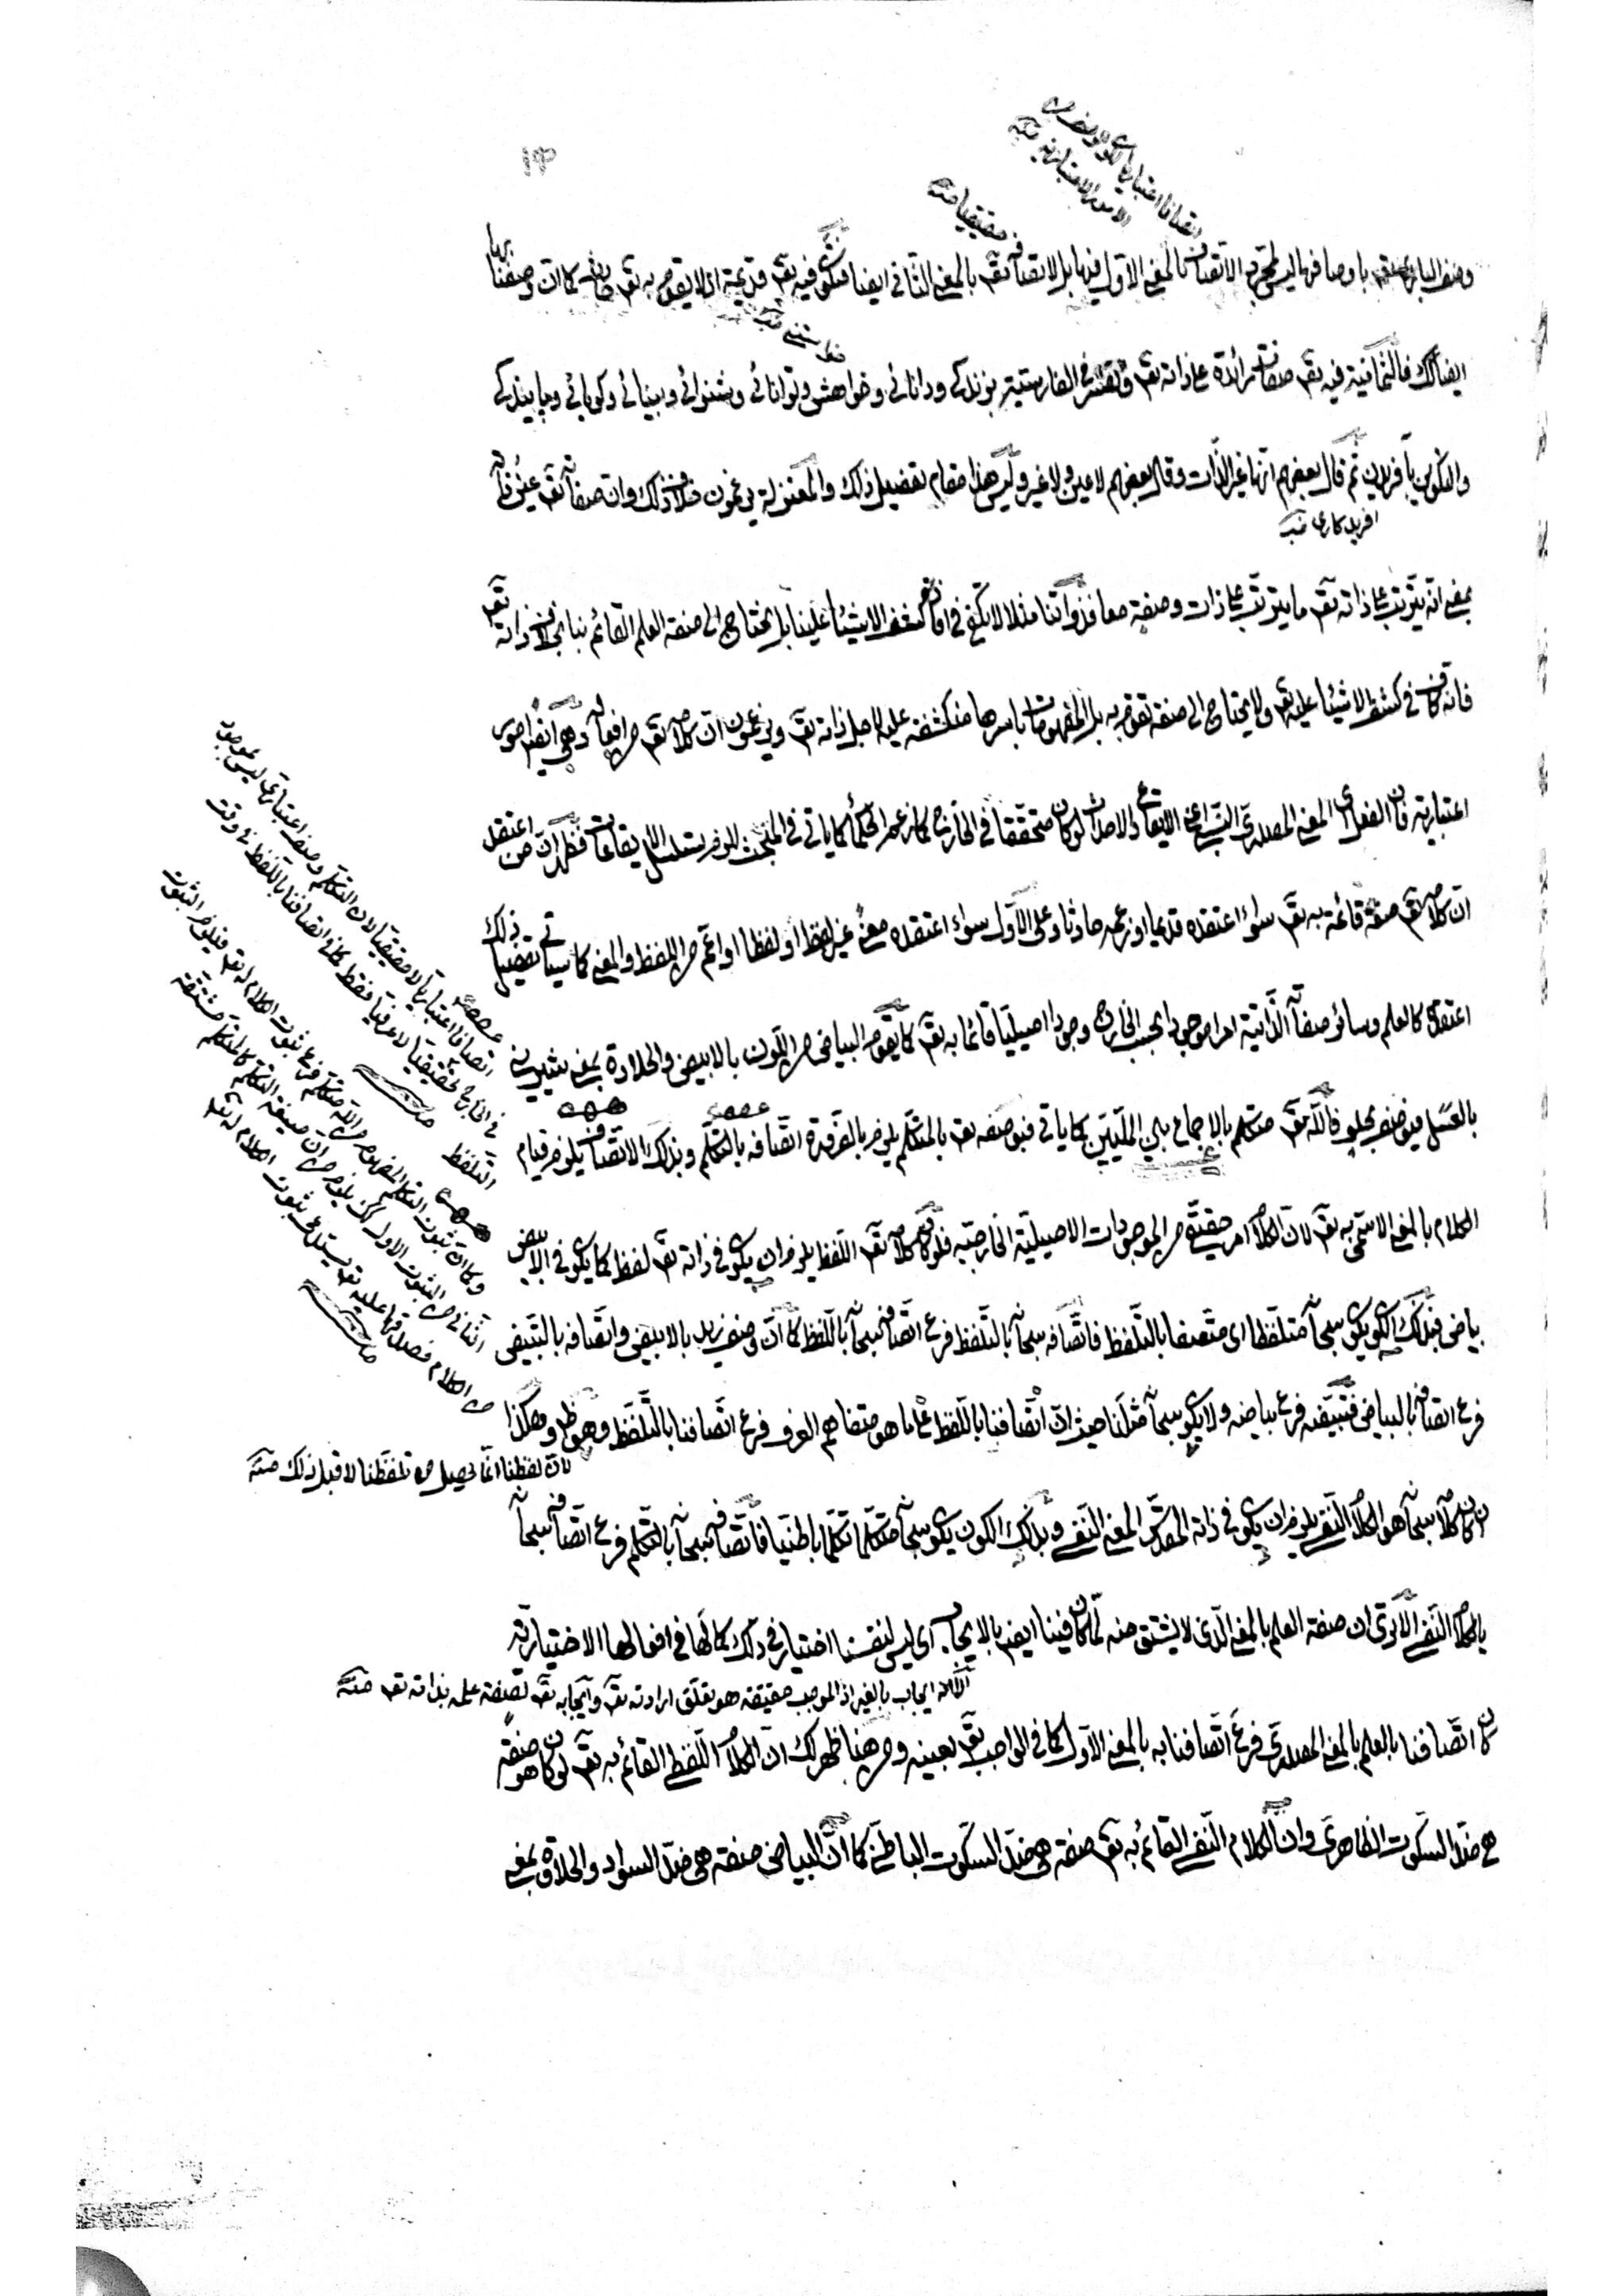 ١٣
اتصافا اعتباريا
الامور الاعتبارية منه
حقيقيا منه
وصف الباري تعالى باوصافها ليس بمجرد الاتصاف بالمعنى الاول فيها بل لاتصافه تعه بالمعنى الثاني ايضا فتكون فيه تعه قديمة اذ لا يقوم به تعه حادث كما ان وصفنا بها
خواستنى منه
ايضا كك فالثمانية فيه تعه صفات زائدة على ذاته تعه وتفسر في الفارسية بزندگى ودانائى وخواهش وتوانائى وشنوائى وبينائى وگويائى وپايندگى
والتكوين بآفريدن ثم قال بعضهم انها غير الذات وقال بعضهم لا عين ولا غير وليس هذا مقام تفصيل ذلك والمعتزلة يزعمون خلاف ذلك وان صفاته تعه عين ذاته
آفريدكارى منه
بمعنى انه يترتب على ذاته تعه ما يترتب على ذات وصفة معا فذواتنا مثلا لا تكفي في انكشاف الاشياء علينا بل نحتاج الى صفة العلم القائم بنا بخلاف ذاته تعه
فانه كاف في كشف الاشياء عليه تعه ولا يحتاج الى صفة تقوم به بل المفهومات باسرها منكشفة عليه لاجل ذاته تعه ويزعمون ان كلامه تعه من افعاله وهي ايضا امور
اعتبارية فان الفعل اى المعنى المصدرى النسبى اعنى الايقاع والاحداث لو كان متحققا في الخارج كما زعم الحكماء كما ياتي في المبحث للزم تسلسل الايقاعات فظهر ان من اعتقد
ان كلامه تعه صفة قائمة به تعه سواء اعتقده قديما او زعمه حادثا وعلى الاول سواء اعتقده معنى غير لفظ او لفظا او اعم من اللفظ والمعنى كما سياتى تفصيل ذلك
اعتقده كالعلم وسائر صفاته الذاتية امرا موجودا بحسب الخارج وجودا اصيليا قائما به تعه كما يقوم البياض من اللون بالابيض والحلاوة بمعنى شيرينى
بالعسل فيوصف بحلو فالله تعه متكلم بالاجماع بين المليين كما ياتى فبوصفه تعه بالمتكلم يلزم بالضرورة اتصافه بالتكلم وبذلك الاتصاف يلزم قيام
الكلام بالمعنى الاسمى به تعه لان الكلام امر حقيقى من الموجودات الاصيلية الخارجية فلو كان كلامه تعه اللفظ يلزم ان يكون في ذاته تعه لفظ كما يكون في الابيض
بياض فبذلك الكون يكون سبحانه متلفظا اى متصفا بالتلفظ فاتصافه سبحانه بالتلفظ فرع اتصافه سبحانه باللفظ كما ان وصف زيد بالابيض واتصافه بالتبيض
فرع اتصافه بالبياض فتبيضه فرع بياضه ولا يكون سبحانه مثلنا حيث ان اتصافنا باللفظ على ما هو متفاهم العرف فرع اتصافنا بالتلفظ وهو ظ وهكذا
لان لفظنا انما يحصل من تلفظنا لا قبل ذلك منه
ان كان كلامه سبحانه هو الكلام النفسى يلزم ان يكون في ذاته المقدس المعنى النفسى وبذلك الكون يكون سبحانه متكلما تكلما باطنيا فاتصافه سبحانه بالتكلم فرع اتصافه سبحانه
بالكلام النفسى الا ترى ان صفة العلم بالمعنى الذى لا يشتق منه لما كان فينا ايضا بالايجاب اى ليس لنفسنا اختيار في ذلك كما لها في افعالها الاختيارية
ايجاب بالغير اذ الموجب حقيقة هو تعلق ارادته تعه وايجابه تعه لصفة علمه بذاته تعه منه
كان اتصافنا بالعلم بالمعنى المصدرى فرع اتصافنا به بالمعنى الاول كما في الواجب تعه بعينه ومن هنا ظهر لك ان الكلام اللفظى القائم به تعه لو كان هو صفة
هى ضد السكوت الظاهرى وان الكلام النفسى القائم به تعه صفة هى ضد السكوت الباطنى كما ان البياض صفة هى ضد السواد والحلاوة بمعنى
اتصافا اعتباريا لا حقيقيا لان التكلم وصف اعتبارى ليس بموجود
في الخارج تحقيقيا لا عرفيا فقط كان اتصافنا باللفظ في وقت
التلفظ منه
وكما ان ثبوت التكلم المفهوم من الله متكلم فرع ثبوت الكلام له تعه فيلزم الثبوت
الثانى من الثبوت الاول كك يلزم من ان صيغة التكلم كالمتكلم مشتقة
من الكلام فصدقها عليه تعه يستدعى ثبوت الكلام له تعه
منه